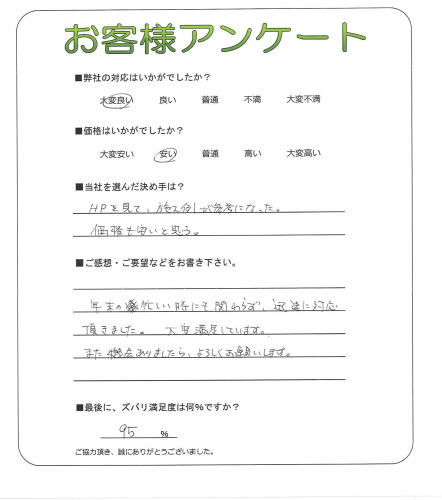 お客様アンケート
■弊社の対応はいかがでしたか？
大変良い 良い 普通 不満 大変不満
■価格はいかがでしたか？
大変安い 安い 普通 高い 大変高い
■当社を選んだ決め手は？
HPを見て、施工例が参考になった。
価格も安いと思う。
■ご感想・ご要望などをお書き下さい。
年末の忙しい時にも関わらず、迅速に対応
頂きました。 大変満足しています。
また機会ありましたら、よろしくお願いします。
■最後に、ズバリ満足度は何%ですか？
95 %
ご協力頂き、誠にありがとうございました。